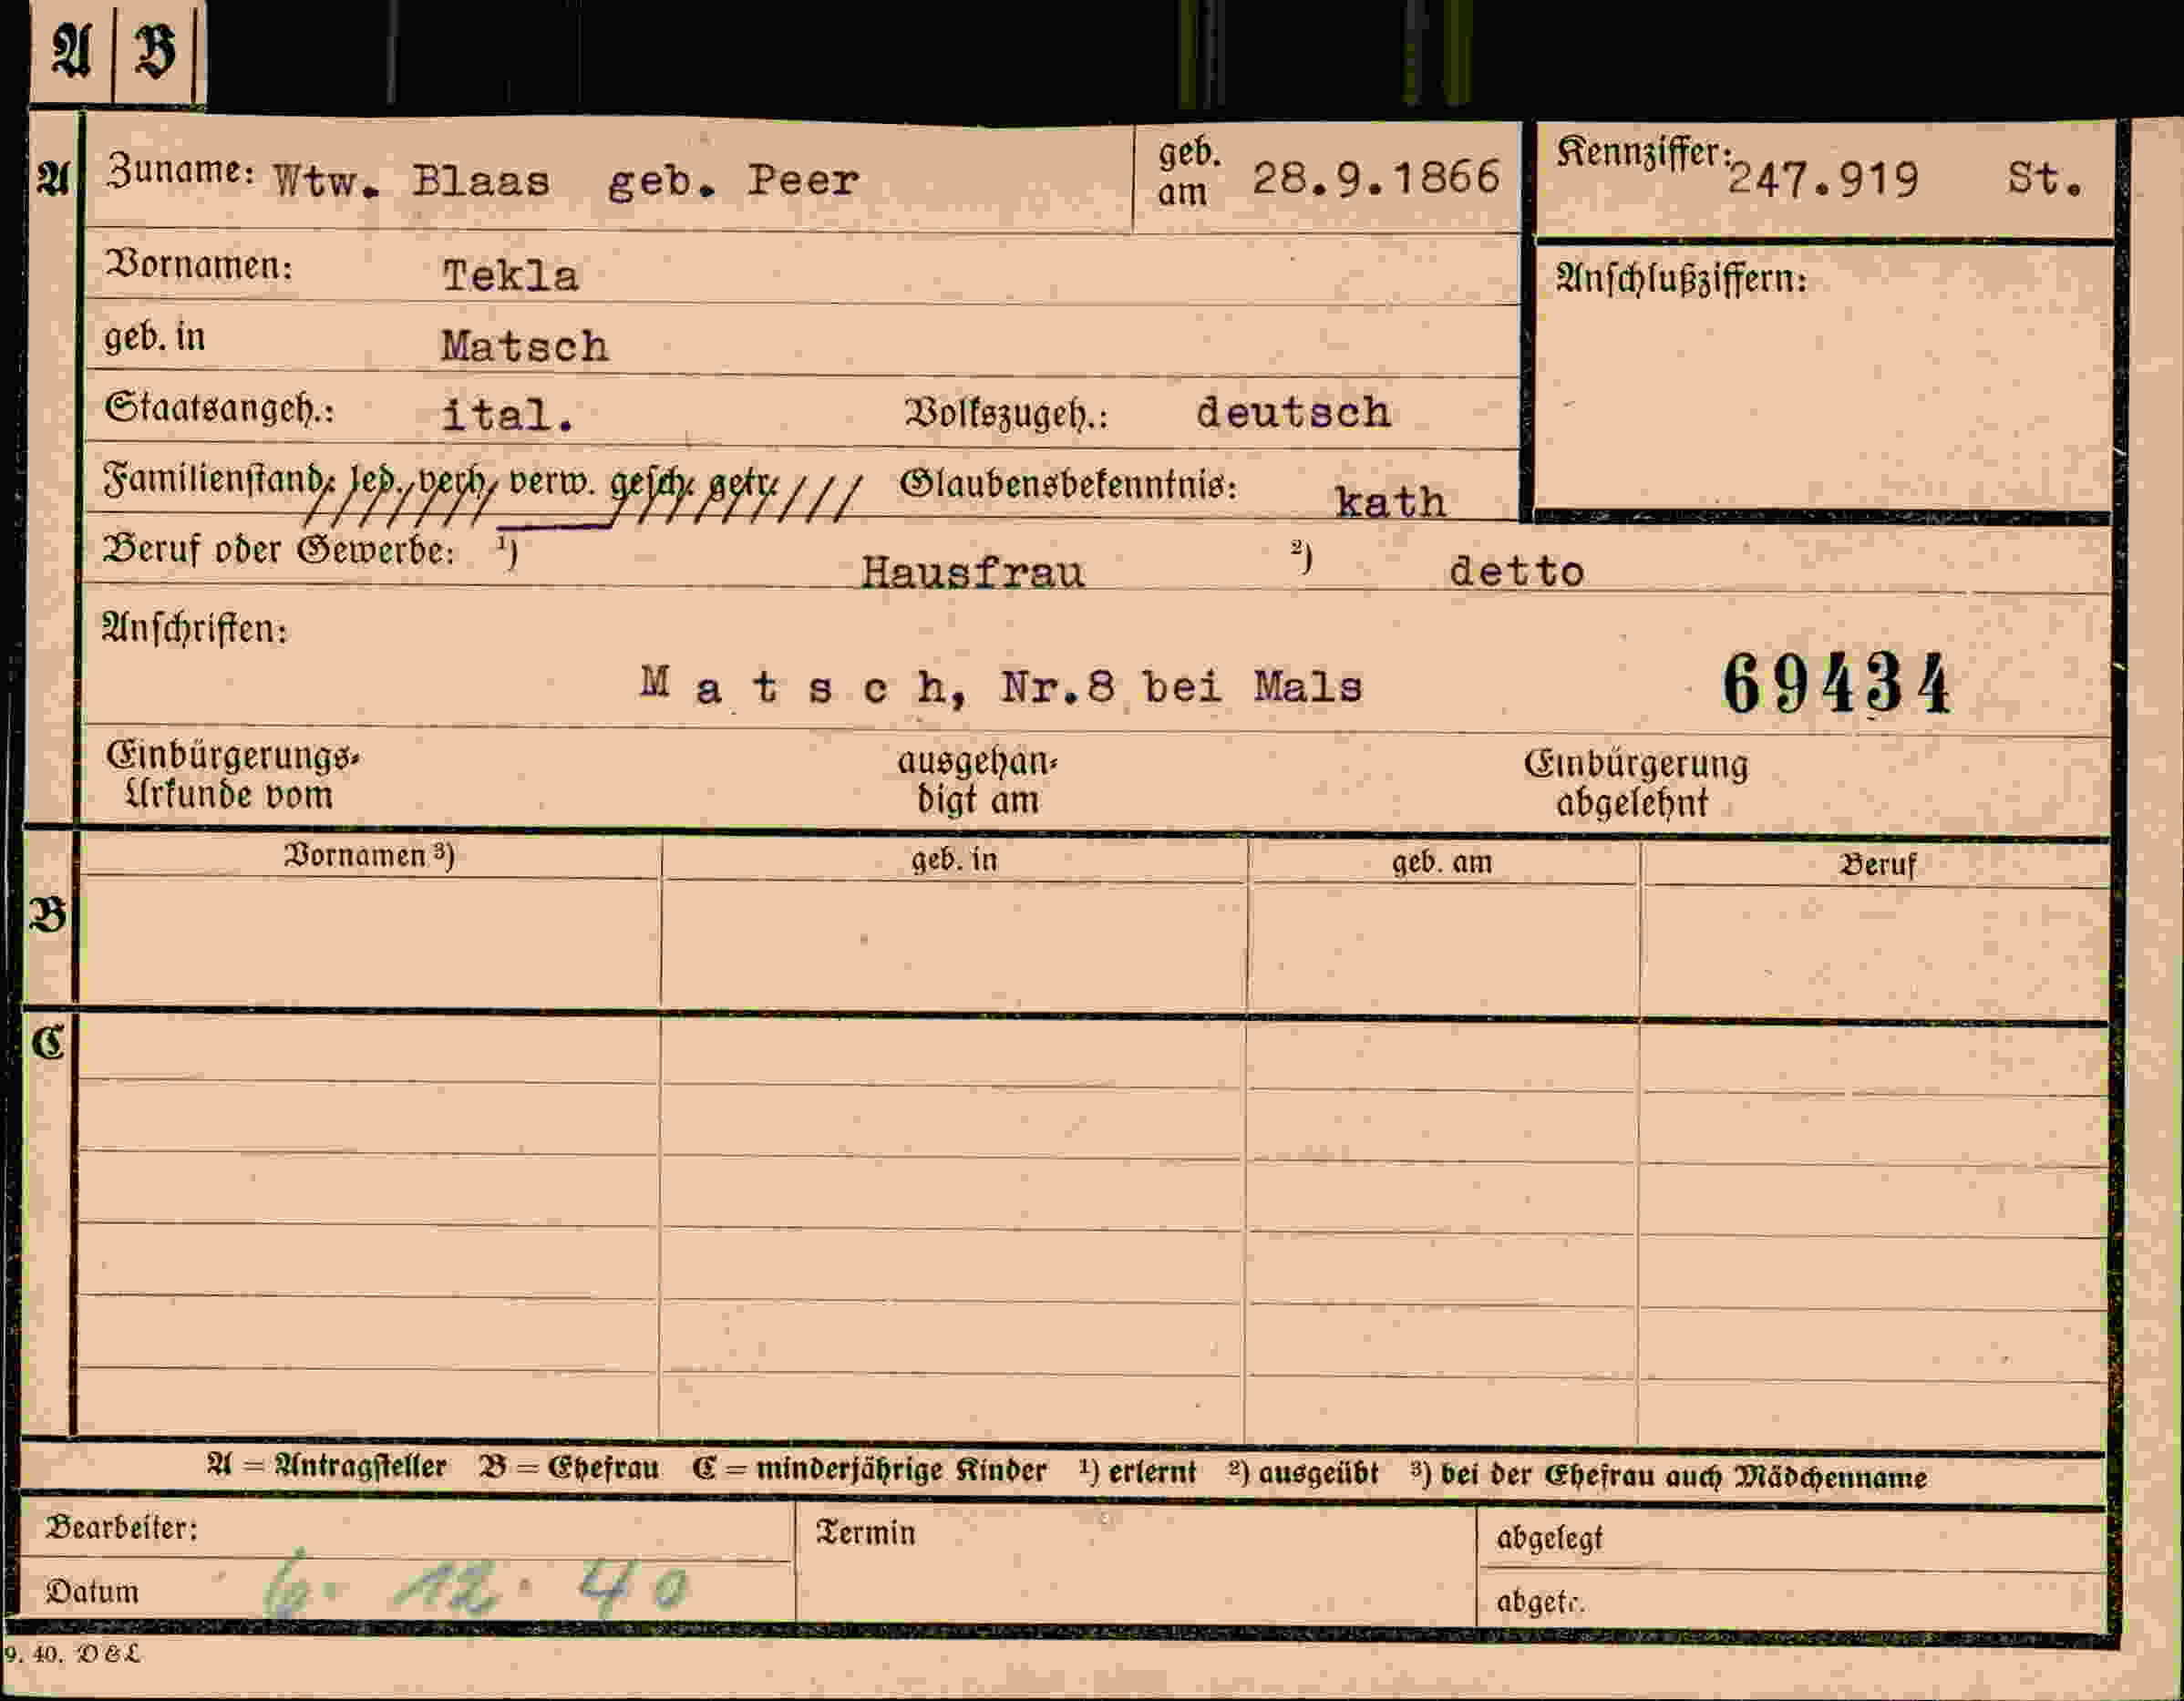 A B
A Zuname: Wtw. Blaas geb. Peer geb. am 28.9.1866 Kennziffer: 247.919 St.
Vornamen: Tekla Anschlußziffern:
geb. in Matsch
Staatsangeh.: ital. Volkszugeh.: deutsch
Familienstand: led. verh. verw. gesch. getr. Glaubensbekenntnis: kath
Beruf oder Gewerbe: ¹) Hausfrau ²) detto
Anschriften:
Matsch, Nr.8 bei Mals 69434
Einbürgerungs- ausgehän- Einbürgerung
Urkunde vom digt am abgelehnt
Vornamen ³) geb. in geb. am Beruf
B
C
A = Antragsteller B = Ehefrau C = minderjährige Kinder ¹) erlernt ²) ausgeübt ³) bei der Ehefrau auch Mädchenname
Bearbeiter: Termin abgelegt
Datum 6. 12. 40 abgetr.
9. 40. D&L